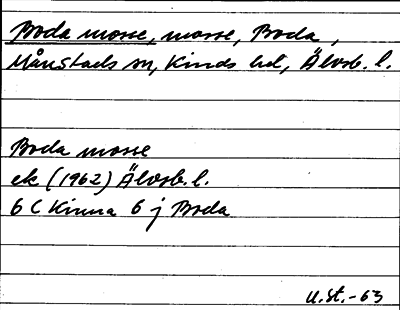 Boda mosse, mosse, Boda,
Månstads sn, Kinds hd, Älvsb. l.
Boda mosse
ek (1962) Älvsb. l.
6 C Kinna 6 j Boda
U.St.-63